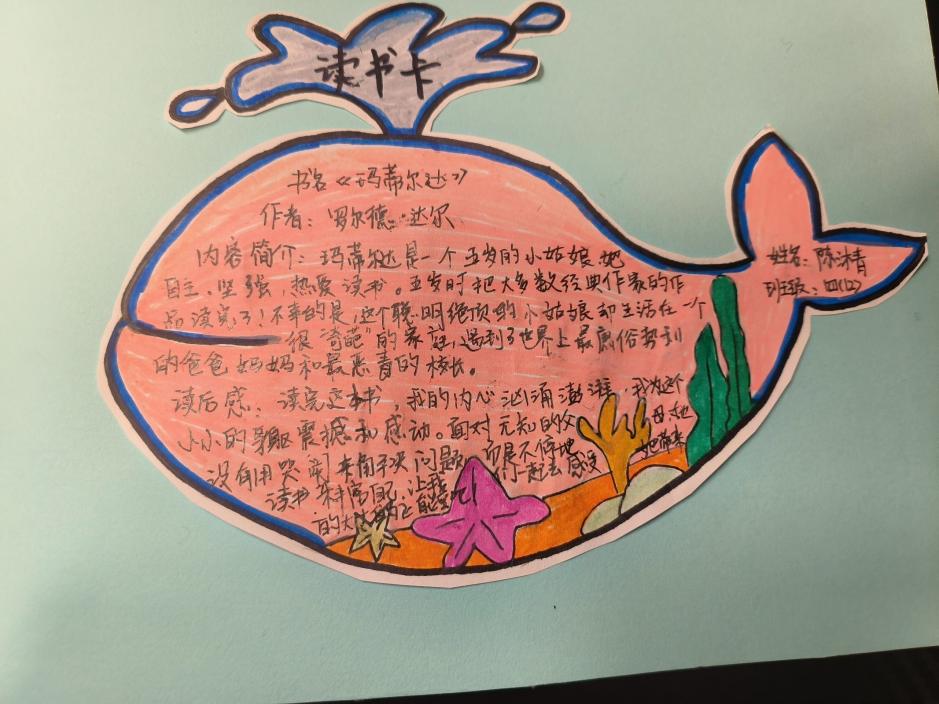 读书卡
书名《玛蒂尔达》
作者：罗尔德·达尔
内容简介：玛蒂尔达是一个五岁的小姑娘，她
自主、坚强、热爱读书。五岁时把大多数经典作家的作
品读完了！不幸的是，这个聪明绝顶的小姑娘却生活在一个
很“奇葩”的家庭，遇到了世界上最庸俗势利
的爸爸妈妈和最恶毒的校长。
读后感：读完这本书，我的内心汹涌澎湃，我为这个
小小的身躯震撼和感动。面对无知的父母，她
没有用哭闹来解决问题，而是不停地
读书来丰富自己，让我们一起去感受
的大
姓名：陈沐青
班级：四(12)